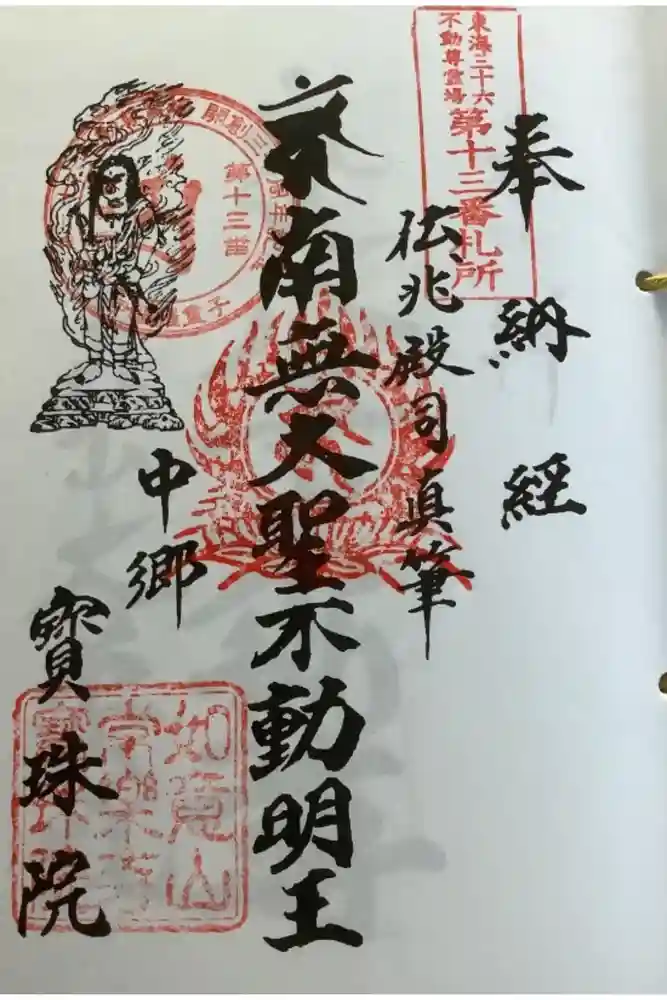 東海三十六
不動尊霊場
第十三番札所
奉納経
伝兆殿司眞筆
南無大聖不動明王
第十三番
中郷
寶珠院
如意山
常樂寺
寶珠院